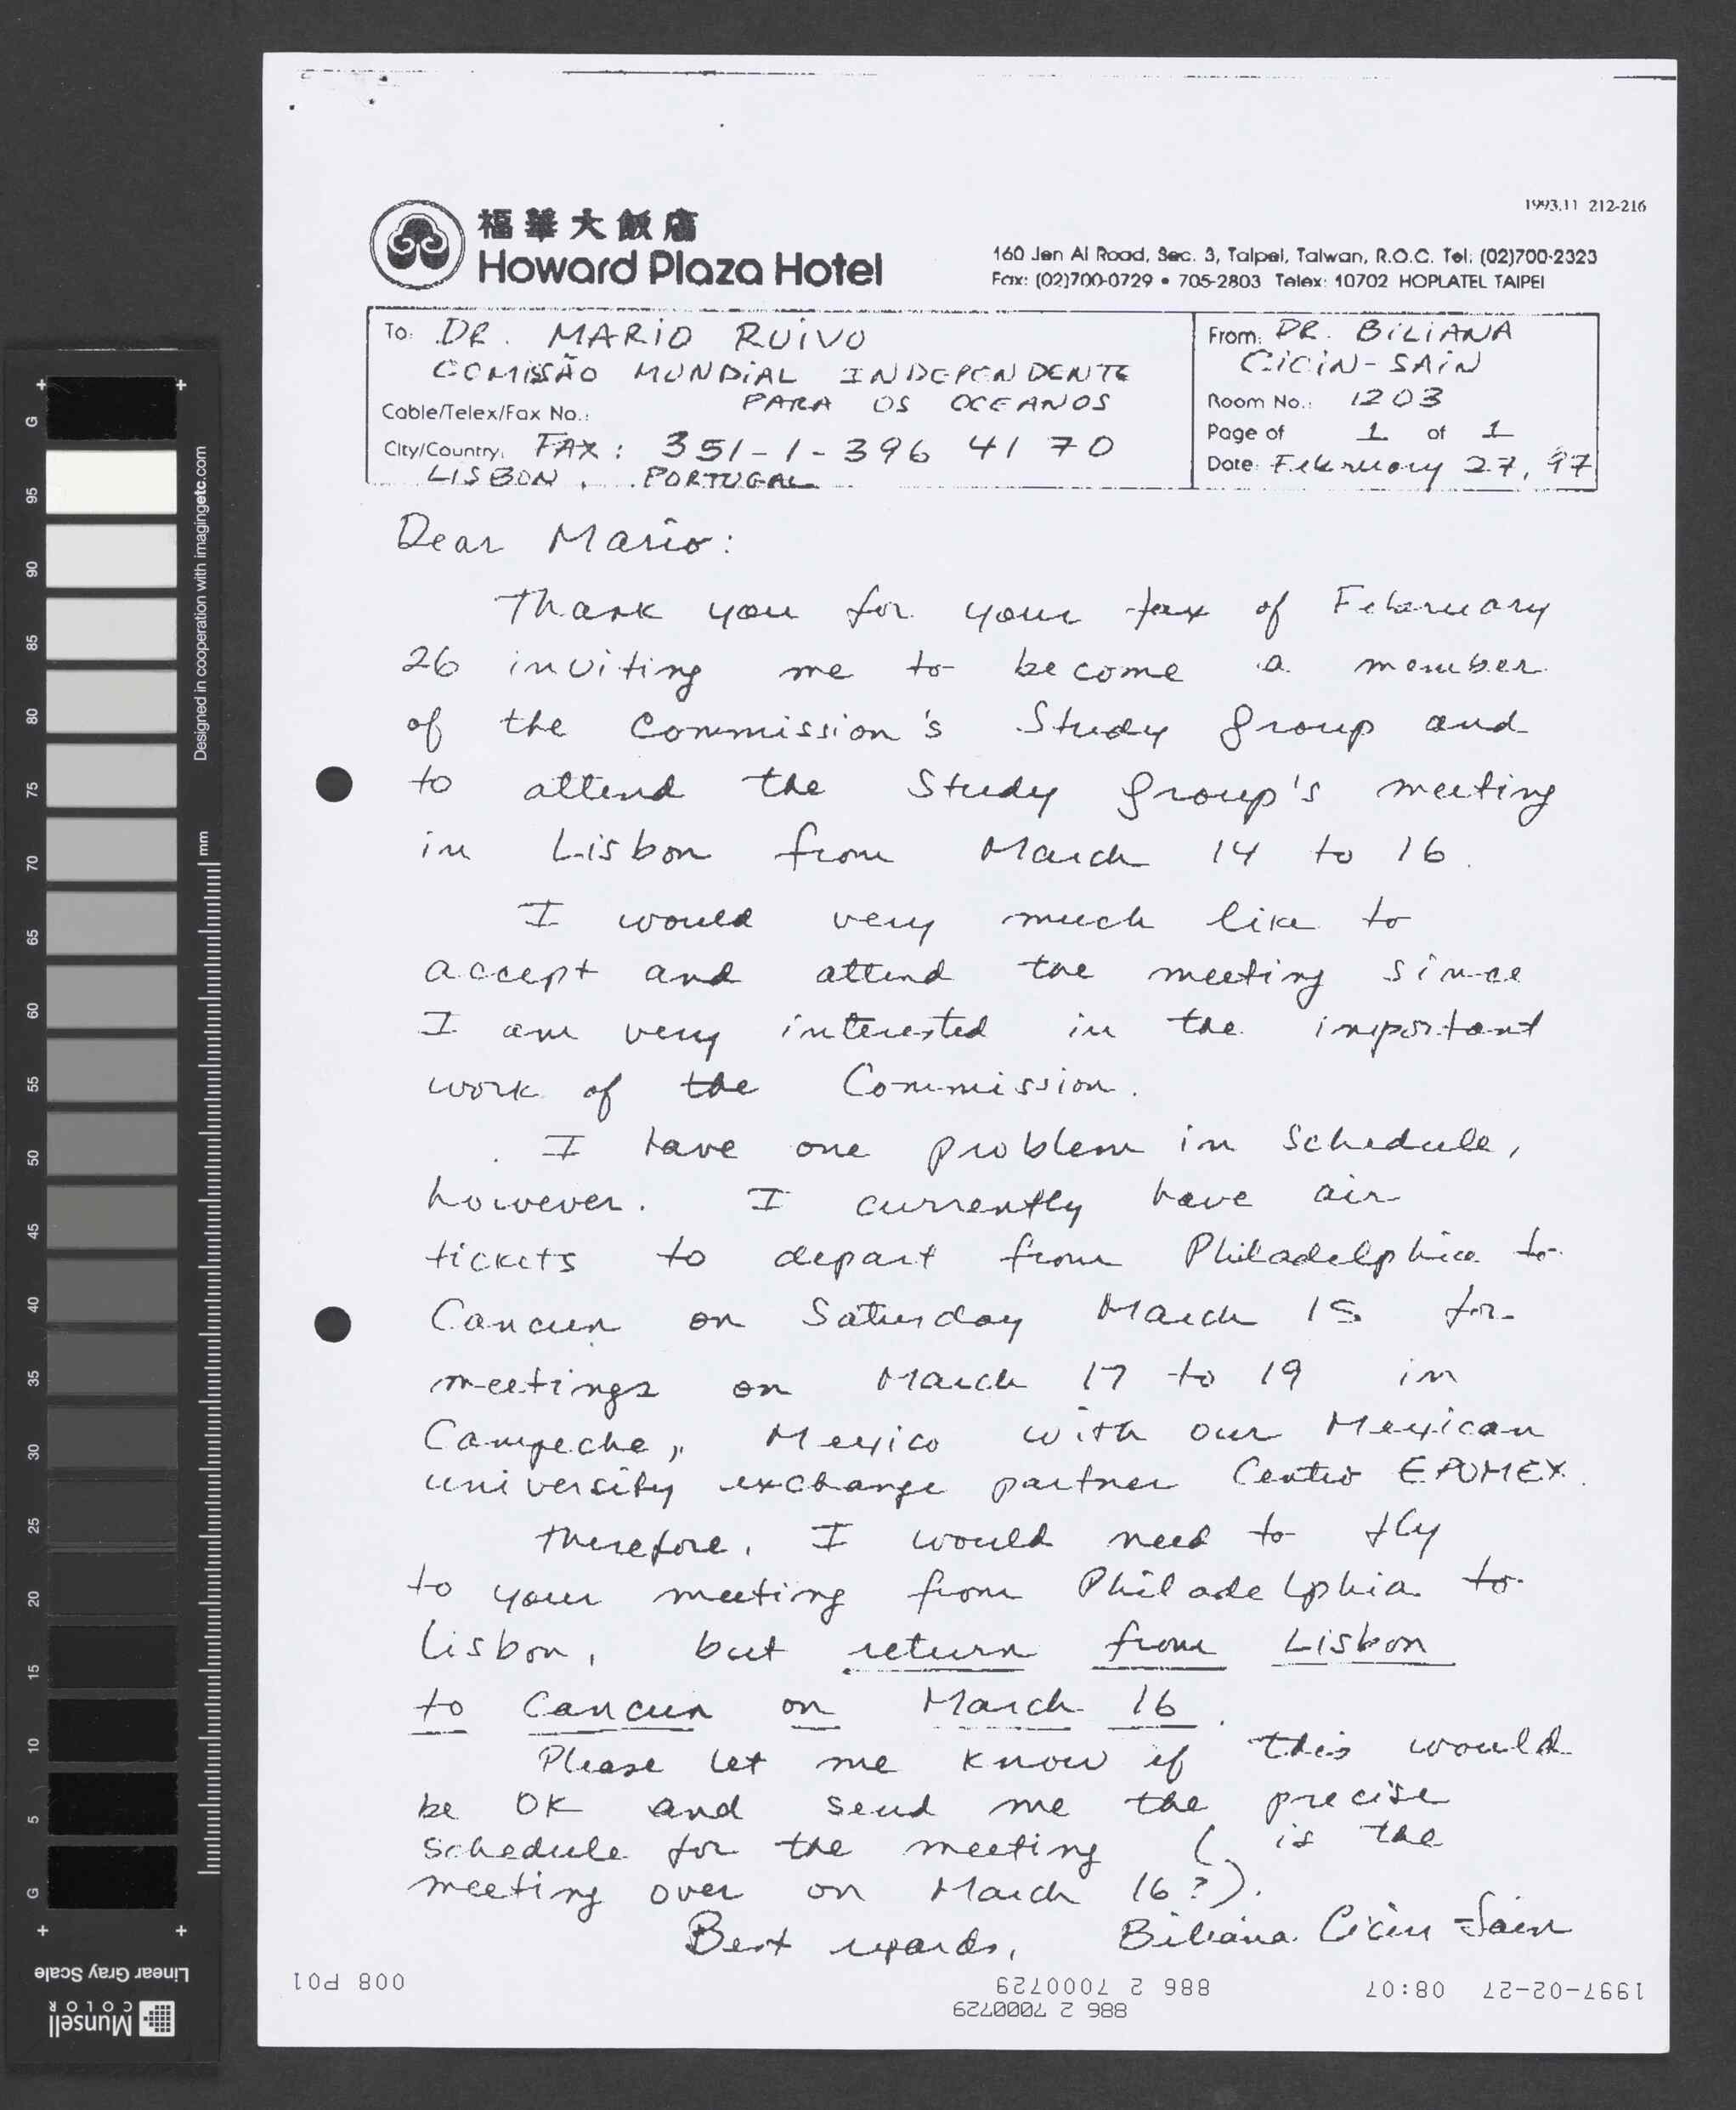 1993.11 212-216
福華大飯店
Howard Plaza Hotel
160 Jen Ai Road, Sec. 3, Taipei, Taiwan, R.O.C. Tel: (02)700-2323
Fax: (02)700-0729 • 705-2803 Telex: 10702 HOPLATEL TAIPEI
To: DR. MARIO RUIVO
COMISSÃO MUNDIAL INDEPENDENTE
PARA OS OCEANOS
Cable/Telex/Fax No.:
City/Country: FAX: 351-1-396 41 70
LISBON, PORTUGAL
From: DR. BILIANA
CICIN-SAIN
Room No.: 1203
Page of 1 of 1
Date: February 27, 97
Dear Mario:
Thank you for your fax of February
26 inviting me to become a member
of the Commission's Study group and
to attend the Study group's meeting
in Lisbon from March 14 to 16.
I would very much like to
accept and attend the meeting since
I am very interested in the important
work of the Commission.
I have one problem in schedule,
however. I currently have air
tickets to depart from Philadelphia to
Cancun on Saturday March 15 for
meetings on March 17 to 19 in
Campeche, Mexico with our Mexican
university exchange partner Centro EPOMEX.
Therefore, I would need to fly
to your meeting from Philadelphia to
Lisbon, but return from Lisbon
to Cancun on March 16.
Please let me know if this would
be OK and send me the precise
schedule for the meeting (is the
meeting over on March 16?).
Best regards, Biliana Cicin-Sain
1997-02-27 08:07
886 2 7000729
886 2 7000729
008 P01
Designed in cooperation with imagingetc.com
mm
G
95
90
85
80
75
70
65
60
55
50
45
40
35
30
25
20
15
10
5
G
Linear Gray Scale
Munsell
COLOR